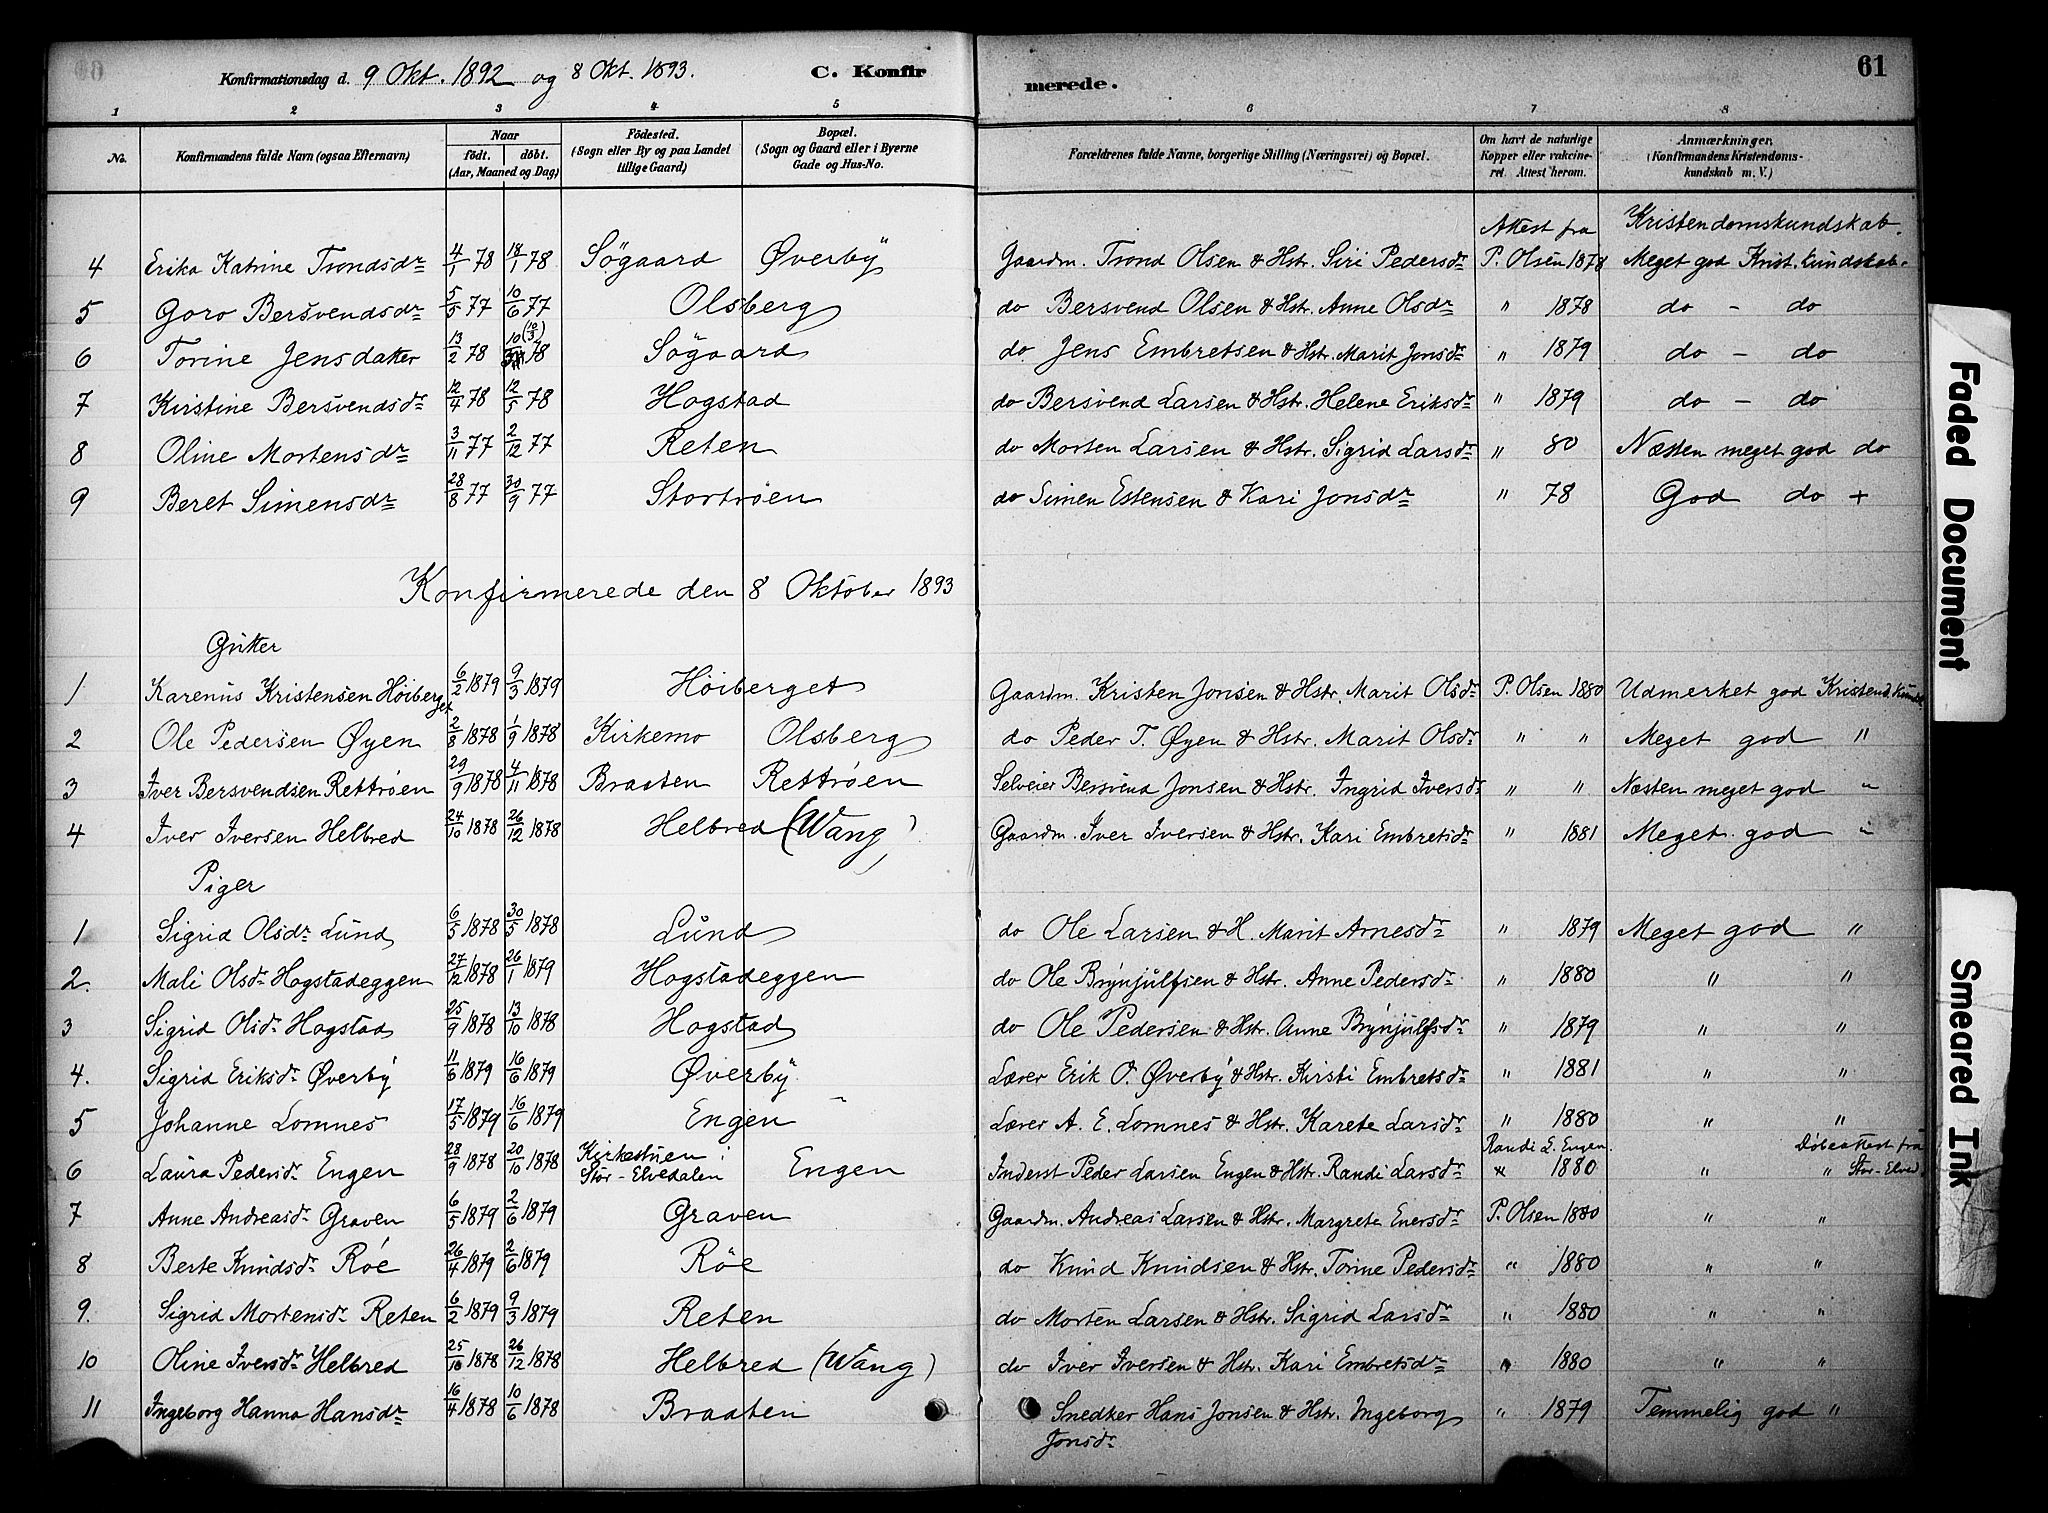 Konfirmationsdag d. 9 Okt. 1892 og 8 Okt. 1893. C. Konfirmerede. 61
1 2 3 4 5 6 7 8
No. Konfirmandens fulde Navn (ogsaa Efternavn) Naar født. døbt. (Aar, Maaned og Dag) Födested. (Sogn eller By og paa Landet tillige Gaard) Bopæl. (Sogn og Gaard eller i Byerne Gade og Hus-No. Forældrenes fulde Navne, borgerlige Stilling (Næringsvei) og Bopæl. Om havt de naturlige Kopper eller vakcineret. Attest herom. Anmærkninger. (Konfirmandens Kristendomskundskab m. V.)
Attest fra Kristendomskundskab.
4 Erika Katrine Trondsdr 4/1 78 18/1 78 Sögaard Øverby Gaardm. Trond Olsen & Hstr. Siri Pedersdr P. Olsen 1878 Meget god Krist. kundskab.
5 Goro Bersvendsdr 5/5 77 10/6 77 Olsberg do Bersvend Olsen & Hstr. Anne Olsdr " 1878 do - do
6 Torine Jensdatter 13/2 78 10 (10/3) 78 Sögaard do Jens Embretsen & Hstr. Marit Jonsdr " 1879 do - do
7 Kirstine Bersvendsdr 12/4 78 12/5 78 Hogstad do Bersvend Larsen & Hstr. Helene Eriksdr " 1879 do - do
8 Oline Mortensdr 3/11 77 2/12 77 Reten do Morten Larsen & Hstr. Sigrid Larsdr " 80 Næsten meget god do
9 Beret Simensdr 28/8 77 30/9 77 Stortröen do Simen Estensen & Kari Jonsdr " 78 God do +
Konfirmerede den 8 Oktober 1893
Gutter
1 Karenus Kristensen Höiberget 6/2 1879 9/3 1879 Höiberget Gaardm. Kristen Jonsen & Hstr. Marit Olsdr P. Olsen 1880 Udmerket god Kristend. kundsk.
2 Ole Pedersen Øyen 2/8 1878 1/9 1878 Kirkemo Olsberg do Peder T. Øyen & Hstr. Marit Olsdr " " Meget god "
3 Iver Bersvendsen Rettröen 29/9 1878 4/11 1878 Braaten Rettröen Selveier Bersvend Jonsen & Hstr. Ingrid Iversdr " " Næsten meget god "
4 Iver Iversen Helbred 24/10 1878 26/12 1878 Helbred (Wang) Gaardm. Iver Iversen & Hstr. Kari Embretsdr " 1881 Meget god "
Piger
1 Sigrid Olsdr Lund 6/5 1878 30/5 1878 Lund do Ole Larsen & H. Marit Arnesdr " 1879 Meget god "
2. Mali Olsdr Hogstadeggen 27/12 1878 26/1 1879 Hogstadeggen do Ole Brynjulfsen & Hstr. Anne Pedersdr " 1880 " "
3 Sigrid Olsdr Hogstad 25/9 1878 13/10 1878 Hogstad do Ole Pedersen & Hstr. Anne Brynjulfsdr " 1879 " "
4. Sigrid Eriksdr Øverby 11/6 1879 16/6 1879 Øverby Lærer Erik O. Øverby & Hstr. Kirsti Embretsdr " 1881 " "
5 Johanne Lomnes 17/5 1879 16/6 1879 Engen Lærer A. E. Lomnes & Hstr. Karete Larsdr " 1880 " "
6 Laura Pedersdr Engen 28/9 1878 20/10 1878 Kirkestuen i Stor-Elvedalen Engen Inderst Peder Larsen Engen & Hstr. Randi Larsdr Randi L. Engen. 1880 " Döbeattest fra " Stor-Elved.
7 Anne Andreasdr Graven 6/5 1879 2/6 1879 Graven Gaardm. Andreas Larsen & Hstr. Margrete Enersdr P. Olsen 1880 " "
8 Berte Knudsdr Röe 26/4 1879 2/6 1879 Röe do Knud Knudsen & Hstr. Torine Pedersdr " 1880 " "
9. Sigrid Mortensdr Reten 6/2 1879 9/3 1879 Reten do Morten Larsen & Hstr. Sigrid Larsdr " 1880 " "
10 Oline Iversdr Helbred 25/10 1878 26/12 1878 Helbred (Wang) do Iver Iversen & Hstr. Kari Embretsdr " 1880 " "
11 Ingeborg Hanna Hansdr 16/4 1878 10/6 1878 Braaten Snedker Hans Jonsen & Hstr. Ingeborg Jonsdr " 1879 Temmelig god "
Faded Document
Smeared Ink